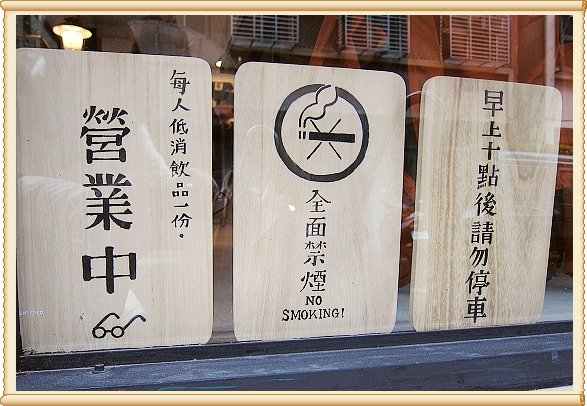 每人低消飲品一份。
營業中
全面禁煙
NO
SMOKING!
早上十點後請勿停車